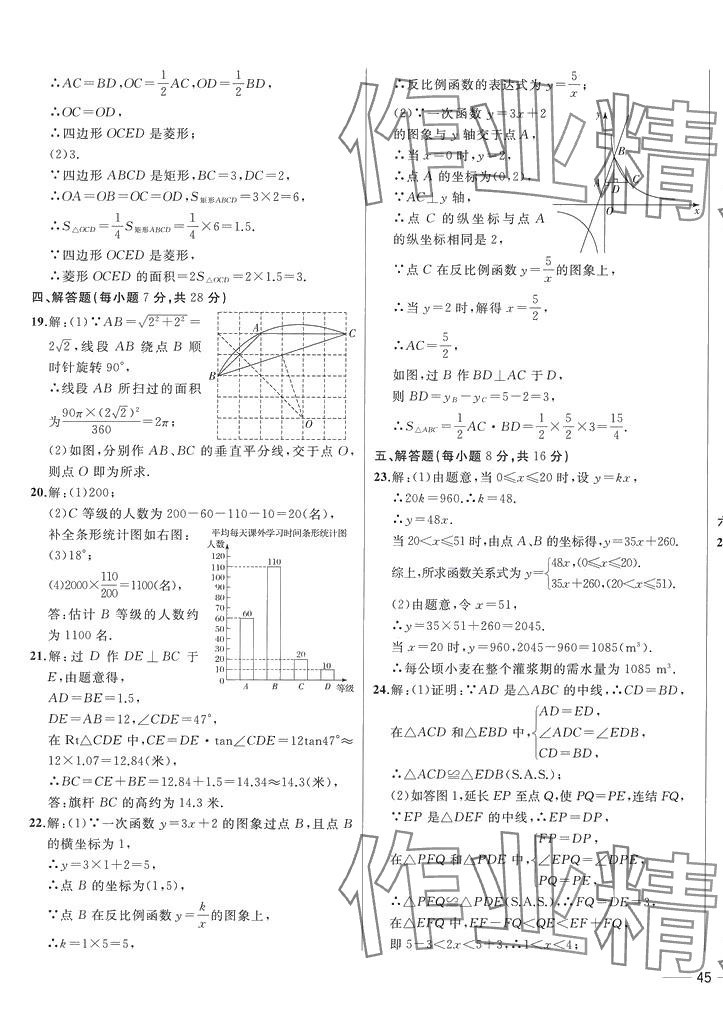 ∴AC=BD,OC=1/2 AC,OD=1/2 BD,
∴OC=OD,
∴四边形 OCED 是菱形;
(2)3.
∵四边形 ABCD 是矩形,BC=3,DC=2,
∴OA=OB=OC=OD,S矩形ABCD=3×2=6,
∴S△OCD=1/4 S矩形ABCD=1/4×6=1.5.
∵四边形 OCED 是菱形,
∴菱形 OCED 的面积=2S△OCD=2×1.5=3.
四、解答题(每小题 7 分,共 28 分)
19.解:(1)∵AB=√(2²+2²)=
2√2,线段 AB 绕点 B 顺
时针旋转 90°,
∴线段 AB 所扫过的面积
为 90π×(2√2)²/360=2π;
A
B
C
O
(2)如图,分别作 AB、BC 的垂直平分线,交于点 O,
则点 O 即为所求.
20.解:(1)200;
(2)C 等级的人数为 200-60-110-10=20(名),
补全条形统计图如右图:
(3)18°;
(4)2000×110/200=1100(名),
答:估计 B 等级的人数约
为 1100 名.
平均每天课外学习时间条形统计图
人数
120
110
100
90
80
70
60
50
40
30
20
10
0
60
110
20
10
A B C D 等级
21.解:过 D 作 DE⊥BC 于
E,由题意得,
AD=BE=1.5,
DE=AB=12,∠CDE=47°,
在 Rt△CDE 中,CE=DE·tan∠CDE=12tan47°≈
12×1.07=12.84(米),
∴BC=CE+BE=12.84+1.5=14.34≈14.3(米),
答:旗杆 BC 的高约为 14.3 米.
22.解:(1)∵一次函数 y=3x+2 的图象过点 B,且点 B
的横坐标为 1,
∴y=3×1+2=5,
∴点 B 的坐标为(1,5),
∵点 B 在反比例函数 y=k/x 的图象上,
∴k=1×5=5,
∴反比例函数的表达式为 y=5/x;
(2)∵一次函数 y=3x+2
的图象与 y 轴交于点 A,
∴当 x=0 时,y=2,
∴点 A 的坐标为(0,2),
∵AC⊥y 轴,
∴点 C 的纵坐标与点 A
的纵坐标相同是 2,
y
B
A
D
C
O
x
∵点 C 在反比例函数 y=5/x 的图象上,
∴当 y=2 时,解得 x=5/2,
∴AC=5/2,
如图,过 B 作 BD⊥AC 于 D,
则 BD=yB-yC=5-2=3,
∴S△ABC=1/2 AC·BD=1/2×5/2×3=15/4.
五、解答题(每小题 8 分,共 16 分)
23.解:(1)由题意,当 0≤x≤20 时,设 y=kx,
∴20k=960.∴k=48.
∴y=48x.
当 20<x≤51 时,由点 A、B 的坐标得,y=35x+260.
综上,所求函数关系式为 y={48x,(0≤x≤20).
35x+260,(20<x≤51).
(2)由题意,令 x=51,
∴y=35×51+260=2045.
当 x=20 时,y=960,2045-960=1085(m³).
∴每公顷小麦在整个灌浆期的需水量为 1085 m³.
24.解:(1)证明:∵AD 是△ABC 的中线,∴CD=BD,
在△ACD 和△EBD 中,{AD=ED,
∠ADC=∠EDB,
CD=BD,
∴△ACD≌△EDB(S.A.S.);
(2)如答图 1,延长 EP 至点 Q,使 PQ=PE,连结 FQ,
∵EP 是△DEF 的中线,∴EP=DP,
在△PFQ 和△PDE 中,{FP=DP,
∠EPQ=∠DPE,
PQ=PE,
∴△PFQ≌△PDE(S.A.S.),∴FQ=DE=3,
在△EFQ 中,EF-FQ<QE<EF+FQ,
即 5-3<2x<5+3,∴1<x<4;
45
作业精
作业精